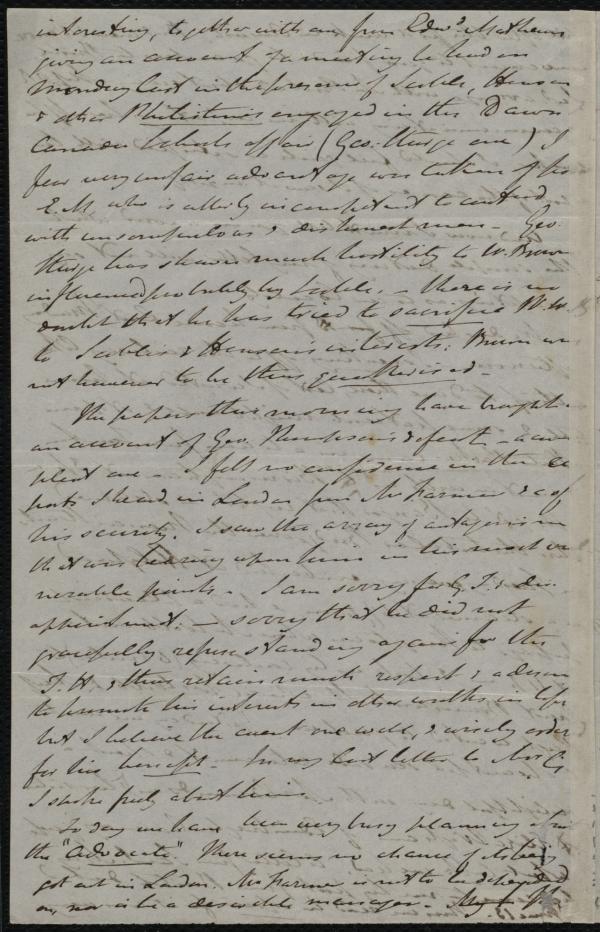 interesting, together with one from Edwd. Mathews
giving an account of a meeting he had on
Monday last in the presence of Scoble, Henson
& other Philistines engaged in this Dawn
Canadian Schools affair (Geo. Sturge one) I
fear very unfair advantage was taken of
E.M. who is utterly incompetent to contend
with unscrupulous & dishonest men - Geo.
Sturge has shewn much hostility to W. Brown
influenced probably by Scoble. - there is no
doubt that he has tried to sacrifice W.W.
to Scoble's & Henson's interests: Brown was
not however to be thus
The papers this morning have brought
an account of Geo. Thompson's defeat - a com
plete one - I felt no confidence in the re
ports I heard in London from Mr Farmer &c of
his security. I saw the array of antagonism
that was bearing upon him in his most vul
nerable points - I am sorry for G.T.'s dis-
appointment. - sorry that he did not
gracefully refuse standing again for the
T.H. & thus retain much respect & a desire
to promote his interests in other walks in life
but I believe the event one well, & wisely order
for his benefit - In my last letter to Mrs C.
I spoke freely about him.
To day we have been very busy planning about
the "Advocate". There seems no chance of its being
got out in London. Mr Farmer is not to be depended
on, nor is he a desirable manager. - My